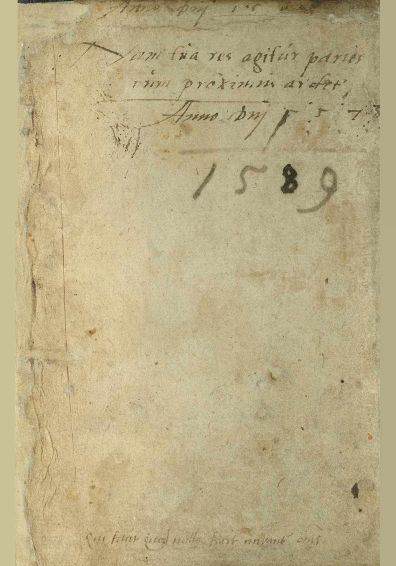 Anno dnj 15
Nam tua res agitur paries
cum proximus ardet,
Anno dnj 1573
1589
Qui